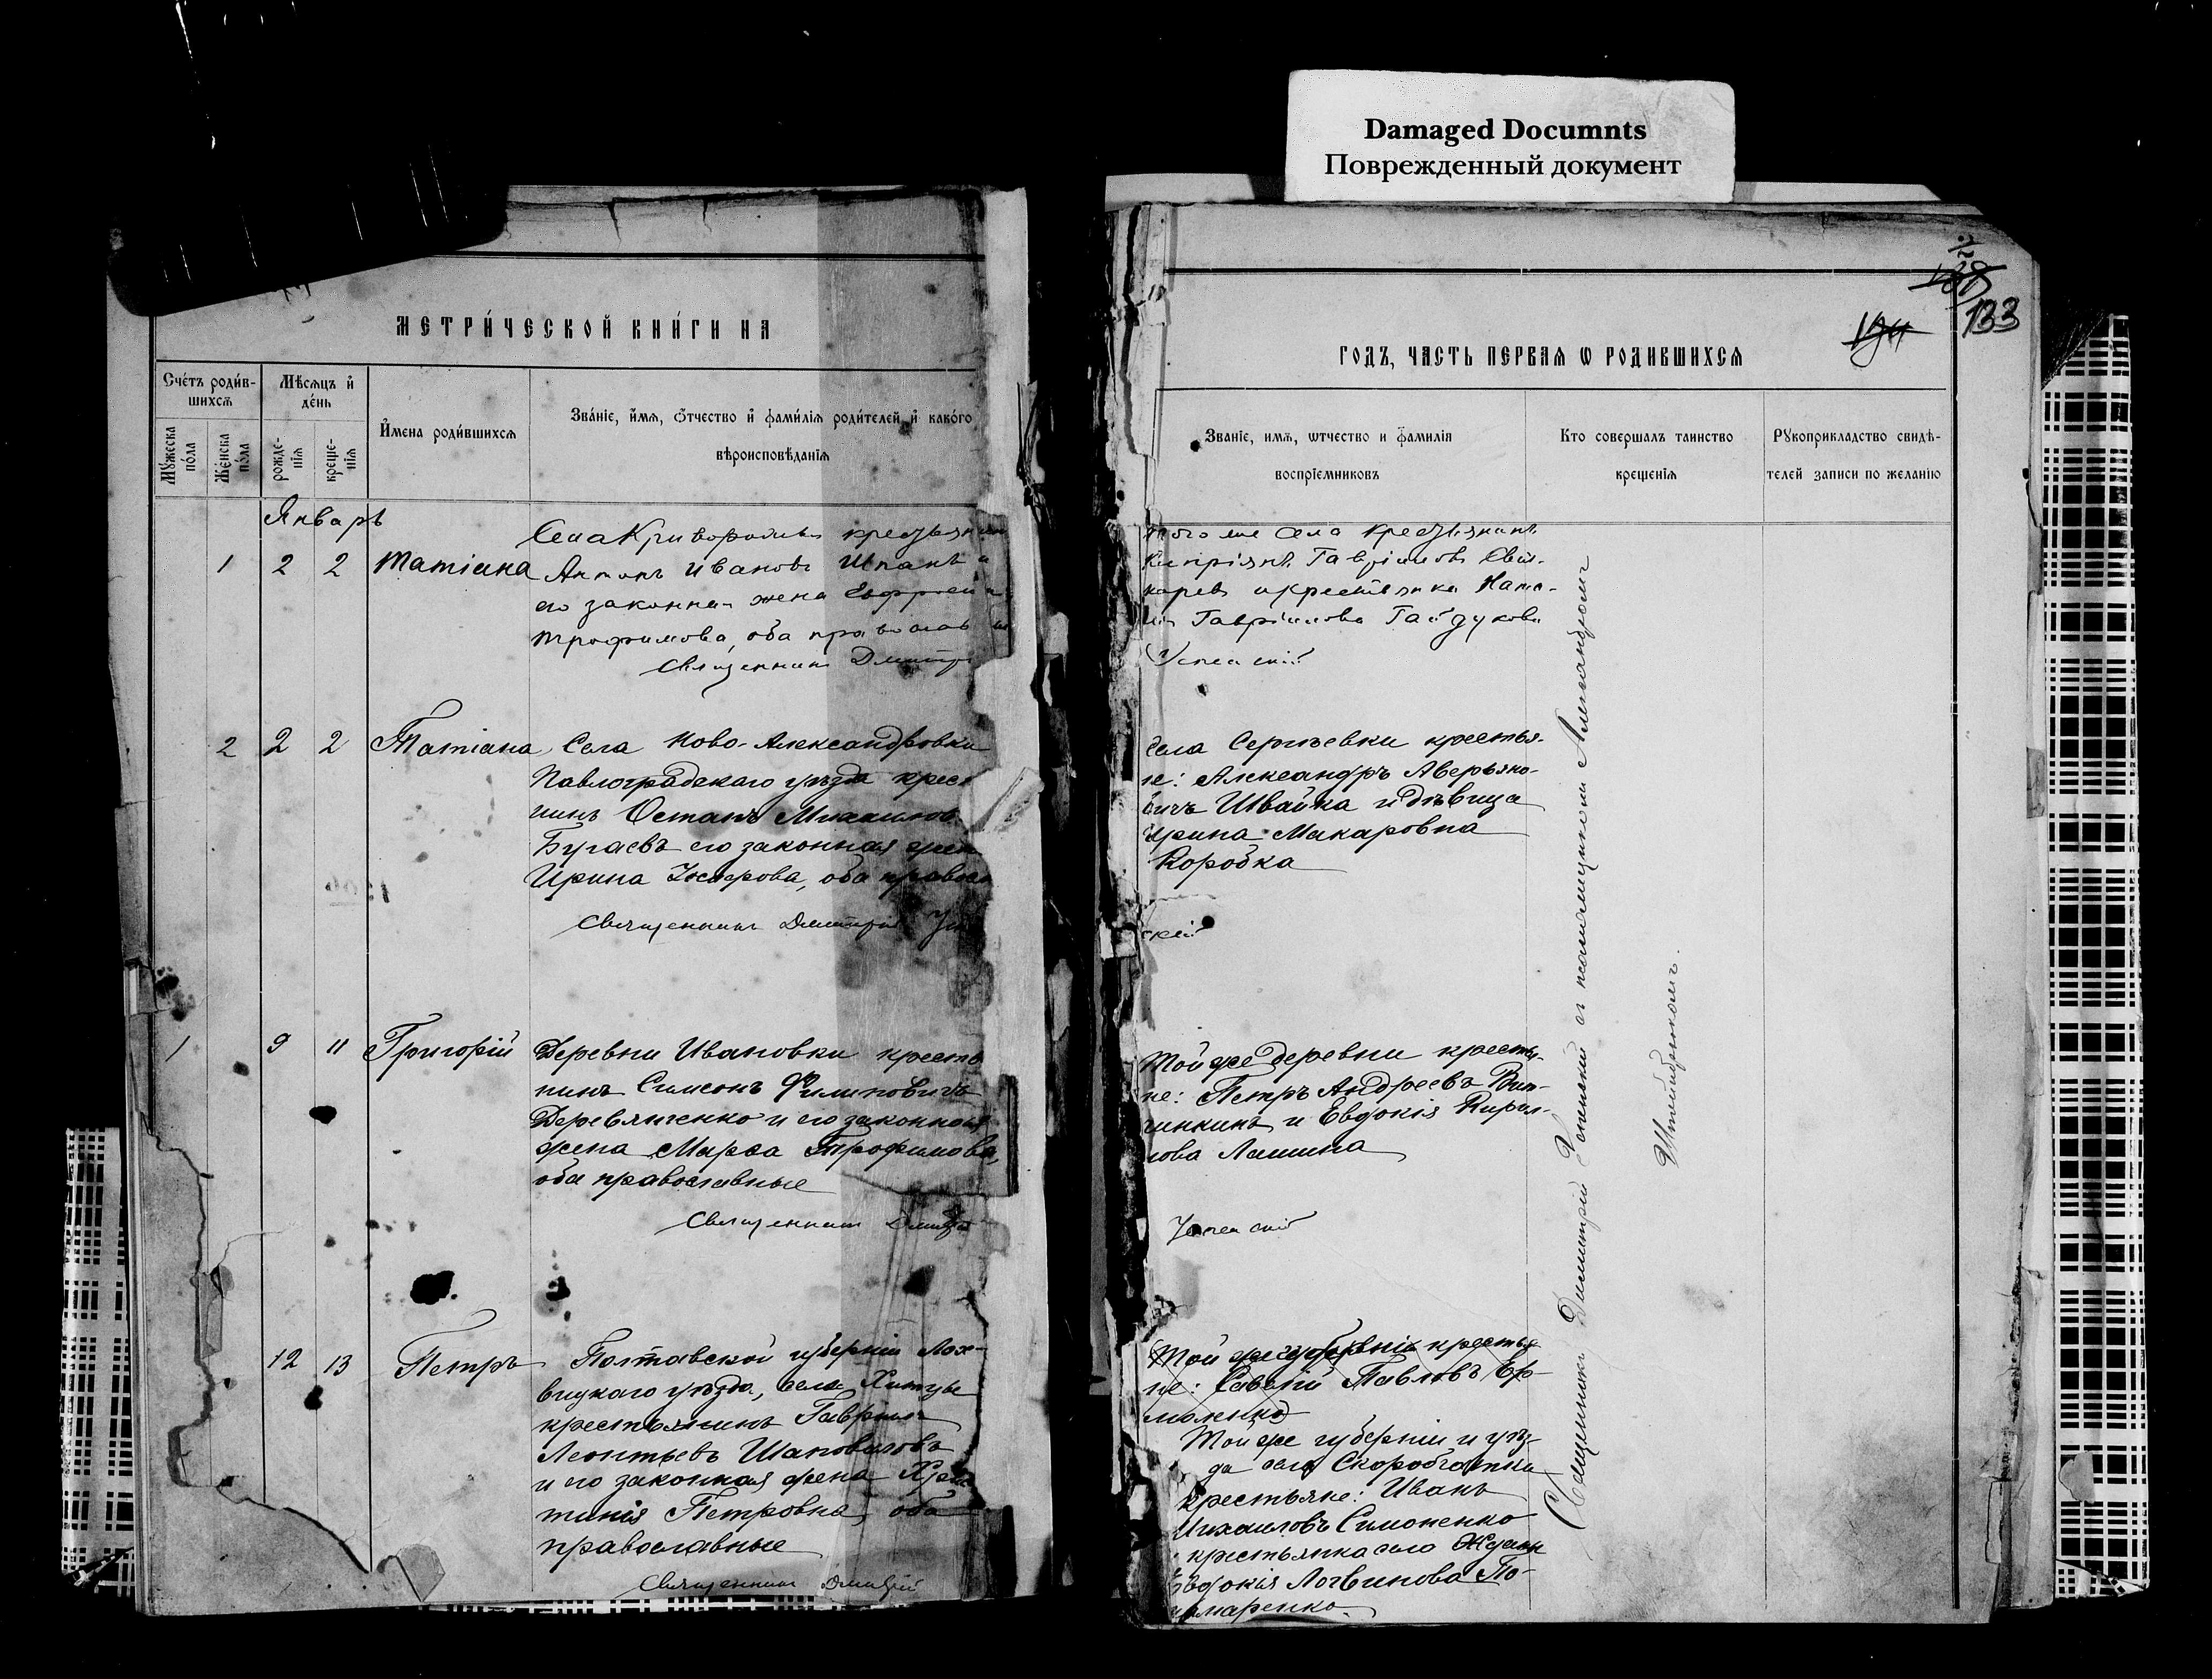 Damaged Documnts
Поврежденный документ
МЕТРИ́ЧЕСКОЙ КНИ́ГИ НА
Сче́тъ роди́в-
шихсѧ
Мѣ́сѧцъ и҆
де́нь
И҆мена роди́вшихсѧ
Зва́нїе, и҆́мѧ, ѻ҆́тчество и҆ фами́лїѧ роди́телей, и҆ како́го
вѣроисповѣ́данїѧ
Мꙋ́жеска
по́ла
Же́нска
по́ла
рожде-
нїѧ
креще-
нїѧ
Январь
1 2 2 Татіана
Села Криворожья крестьянин
Антонъ Ивановъ Шпакъ и
его законная жена Евфросин
Трофимова, оба православ
Священникъ Дмитр
2 2 2 Татіана
Села Ново-Александровки
Павлоградскаго уѣзда крест
нинъ Остапъ Михаилов
Бугаевъ его законная жен
Ирина оба правосл
Священникъ Дмитрій Усп
1 9 11 Григорій
Деревни Ивановки кресть
нинъ Симеонъ Филиповичъ
Деревянченко и его законная
жена Марѳа Трофимова,
оба православные
Священникъ Дмитрій
12 13 Петръ
Полтавской губерніи Лох-
вицкаго уѣзда, села Хитцы
крестьянинъ Гавріилъ
Леонтьевъ Шаповаловъ
и его законная жена Хрис
тинія Петровна, оба
православные
Священникъ Дмитрій
133
ГОДЪ, ЧАСТЬ ПЕРВАѦ Ѡ РОДИВШИХСѦ
Званїе, имѧ, ѡтчество и фамилїѧ
воспрїемниковъ
Кто совершалъ таинство
крещенїѧ
Рꙋкоприкладство свидѣ-
телей записи по желанїю
того же села крестьянинъ
Кипріянъ Гавріиловъ
и крестьянка Ната-
Гавріилова Гайдукова
Успенскій
села Сергѣевки крестья-
не: Александръ Аверьяно-
вичъ Швайка и дѣвица
Ирина Макаровна
Коробка
скій
Той же деревни крестья-
не: Петръ Андреевъ
и Евдокія Кирил-
лова Лашина
Успенскій
Той же губерніи крестья
не: Савелій Павловъ Ер-
моленко
Той же губерніи и уѣз-
да села Скоробогатки
крестьяне: Иванъ
Михаиловъ Симоненко
крестьянка села Ждан
Евдокія Логвинова По-
номаренко.
Священникъ Димитрій Успенскій съ псаломщикомъ Александромъ